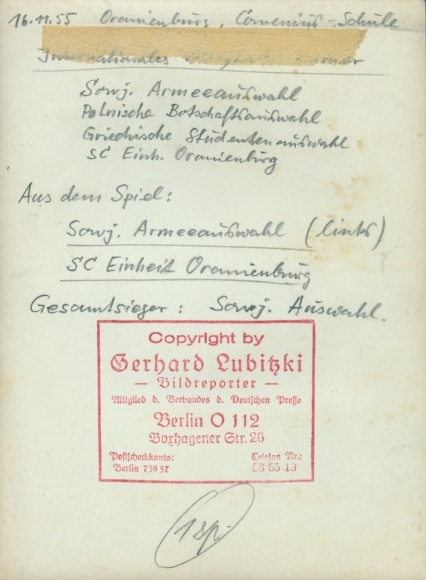 16.11.55 Oranienburg, Comenius-Schule
Internationales
Sowj. Armeeauswahl
Polnische Botschaftsauswahl
Griechische Studentenauswahl
SC Einh. Oranienburg
Aus dem Spiel:
Sowj. Armeeauswahl (links)
SC Einheit Oranienburg
Gesamtsieger: Sowj. Auswahl.
Copyright by
Gerhard Lubitzki
— Bildreporter —
Mitglied d. Verbandes d. Deutschen Presse
Berlin O 112
Boxhagener Str. 26
Postscheckkonto:
Berlin 739 57
Telefon Nr.:
58 55 13
1sp.